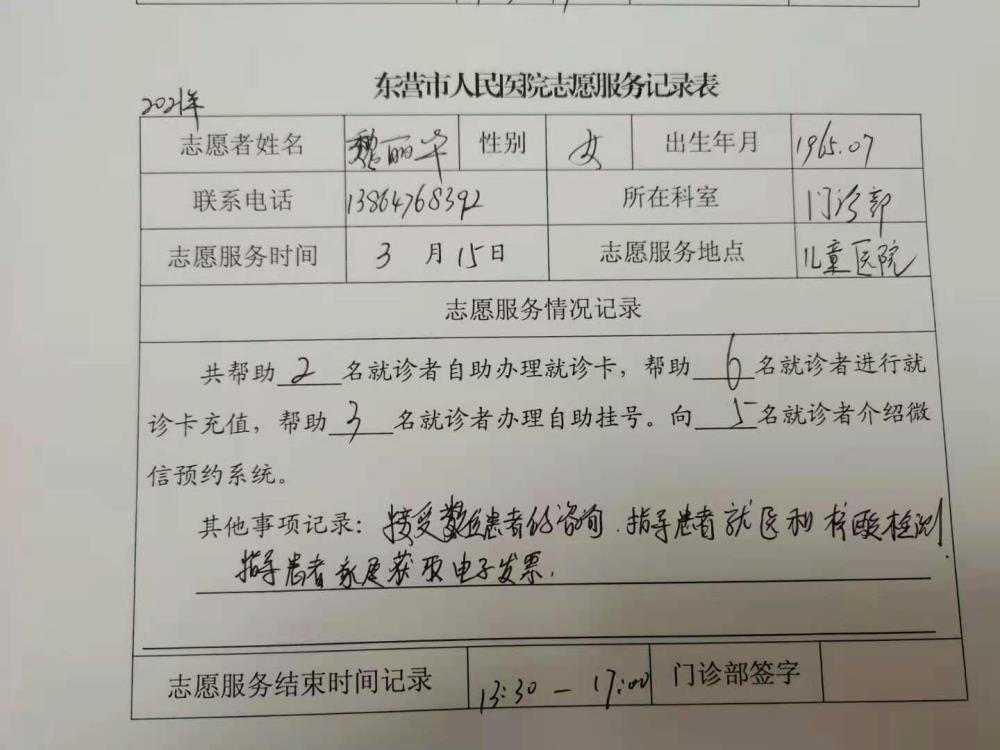 东营市人民医院志愿服务记录表
2021年
志愿者姓名 魏丽华 性别 女 出生年月 1965.07
联系电话 13864768392 所在科室 门诊部
志愿服务时间 3 月 15 日 志愿服务地点 儿童医院
志愿服务情况记录
共帮助 2 名就诊者自助办理就诊卡，帮助 6 名就诊者进行就
诊卡充值，帮助 3 名就诊者办理自助挂号。向 5 名就诊者介绍微
信预约系统。
其他事项记录：接受数位患者的咨询.指导患者就医和核酸检测.
指导患者家属获取电子发票.
志愿服务结束时间记录 13:30 — 17:00 门诊部签字